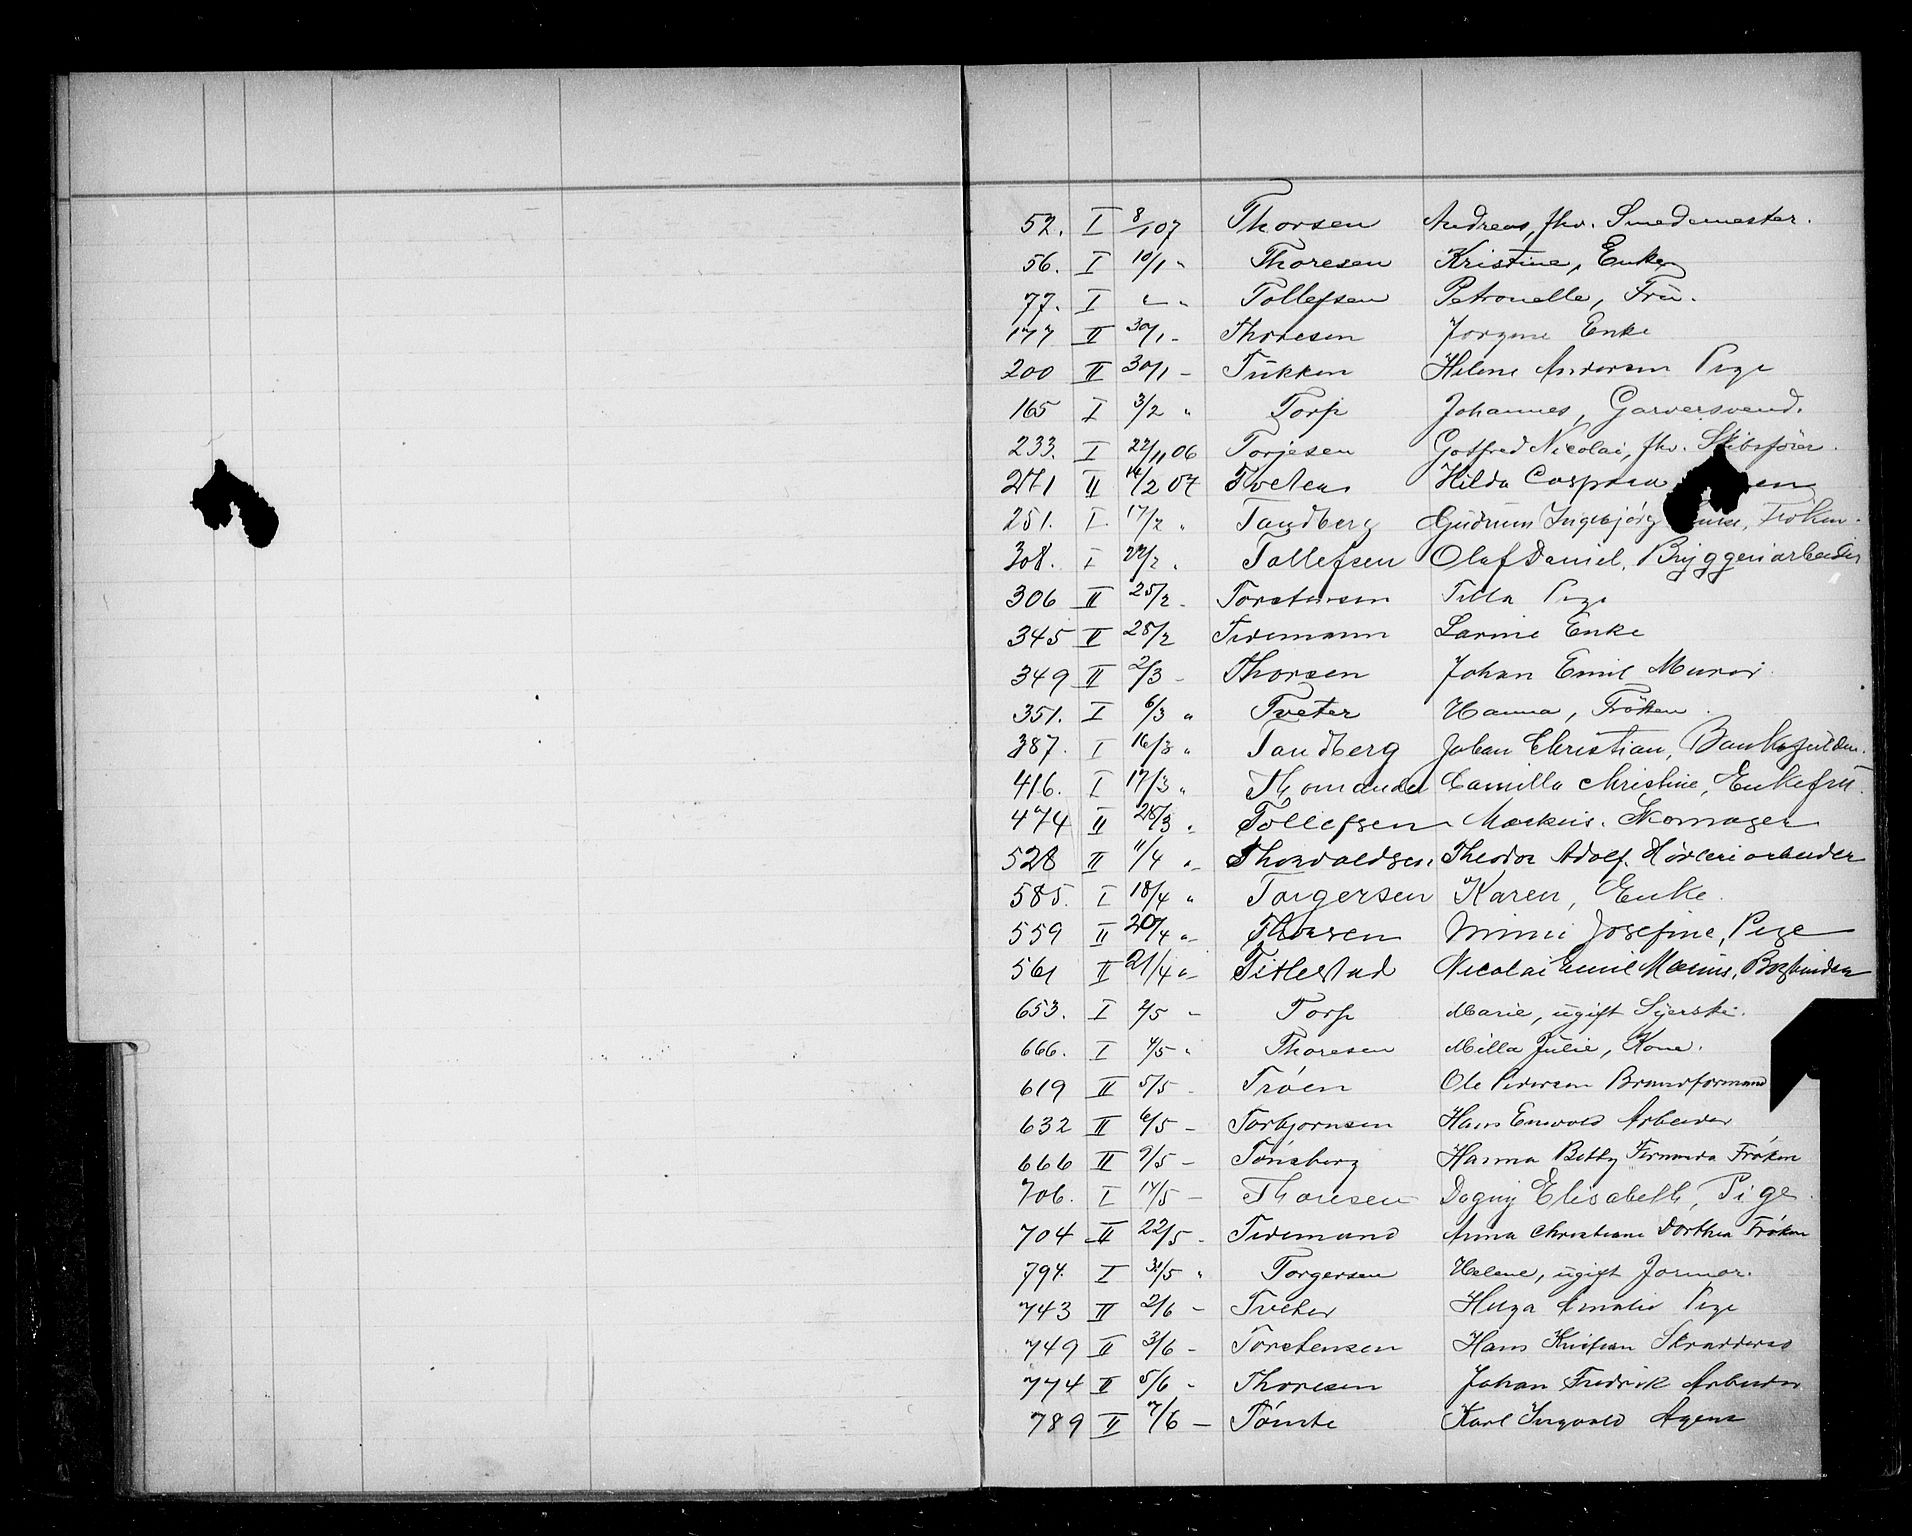 52. I 8/1 07 Thorsen Andreas, fhv. Smedemester.
56. I 10/1 " Thoresen Kristine, Enke
77. I " " Tollefsen Petronelle, Frü.
177 II 30/1 - Thoresen Jorgine Enke
200 II 30/1 - Tükken Helene Andersen Pige
165 I 3/2 " Torp Johannes, Garversvend.
233. I 22/11 06 Torjesen Gotfred Nicolai, fhv. Skibsfører.
271 II 14/2 07 Tveten Hilda Caspara
251. I. 17/2 " Tandberg Gudrun Ingebjørg Frøken.
308. I 22/2 " Tollefsen Olaf Daniel, Bryggeriarbeider
306 II 25/2 - Torstensen Tilla Pige
345 II 28/2 Tidemann Larine Enke
349 II 2/3 - Thorsen Johan Emil Murer.
351. I 6/3 " Tveter Hanna, Frøken.
387. I 16/3 " Tandberg Johan Christian, Bankfuldm.
416. I 17/3 " Thomander Camilla Christine, Enkefrü.
474 II 28/3 " Tollefsen Markus. Skomager
528 II 11/4 " Thorvaldsen Theodor Adolf. Høvleriarbeider
585. I 18/4 " Torgersen Karen, Enke.
559 II 20/4 " Thorsen Mimi Josefine, Pige
561 II 21/4 " Titlestad Nicolai Emil Marius, Bogbinder
653. I 2/5 " Torp Marie, ugift Syerske.
666. I 4/5 " Thoresen Milla Julie, Kone.
619 II 5/5 - Trøen Ole Pedersen Brandformand
632 II 6/5 - Torbjornsen Hans Enevold Arbeider
666 II 9/5 - Tønsberg Hanna Betty Fernanda Frøken
706. I 14/5 - Thoresen Dagny Elisabeth, Pige.
704 II 22/5 - Tidemand Anna Christiane Dorthea Frøken
794. I 31/5 " Torgersen Helene, ugift Jormor.
743 II 2/6 - Tveter Helga Amalie Pige
749 II 3/6 - Torstensen Hans Kristian Skrædders
774 II 5/6 - Thoresen Johan Fredrik Arbeider
789 II 7/6 - Tømte Karl Ingvald Agent